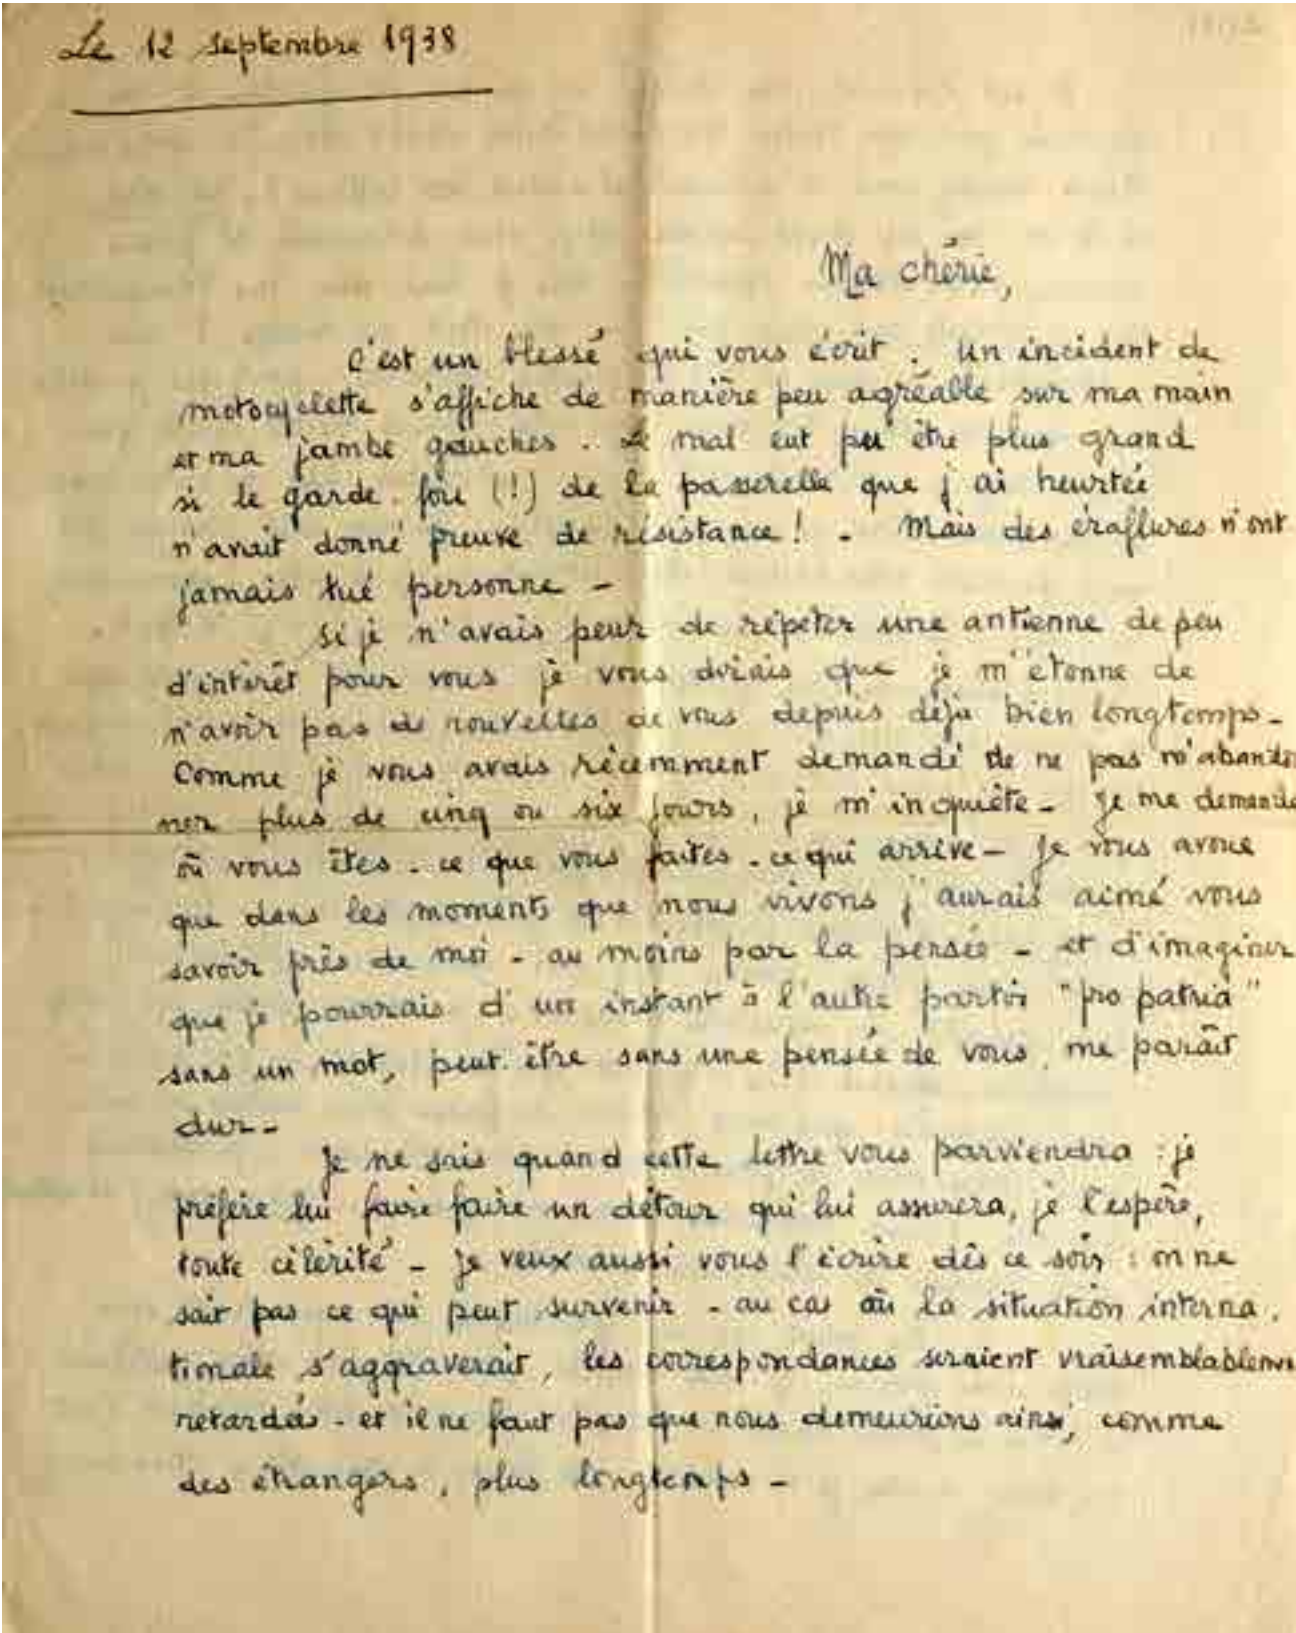 Le 12 septembre 1938
Ma chérie,
C'est un blessé qui vous écrit. Un incident de
motocyclette s'affiche de manière peu agréable sur ma main
et ma jambe gauches. Le mal eut pu être plus grand
si le garde-fou (!) de la passerelle que j'ai heurtée
n'avait donné preuve de résistance! - Mais des éraflures n'ont
jamais tué personne -
Si je n'avais peur de répéter une antienne de peu
d'intérêt pour vous je vous dirais que je m'étonne de
n'avoir pas de nouvelles de vous depuis déjà bien longtemps -
Comme je vous avais récemment demandé de ne pas m'abandon
ner plus de cinq ou six jours, je m'inquiète - Je me demande
où vous êtes - ce que vous faites - ce qui arrive - Je vous avoue
que dans les moments que nous vivons j'aurais aimé vous
savoir près de moi - au moins par la pensée - et d'imaginer
que je pourrais d'un instant à l'autre partir "pro patria"
sans un mot, peut-être sans une pensée de vous, me paraît
dur -
Je ne sais quand cette lettre vous parviendra : je
préfère lui faire faire un détour qui lui assurera, je l'espère,
toute célérité - Je veux aussi vous l'écrire dès ce soir : on ne
sait pas ce qui peut survenir - au cas où la situation interna-
tionale s'aggraverait, les correspondances seraient vraisemblableme
retardées - et il ne faut pas que nous demeurions ainsi, comme
des étrangers, plus longtemps -